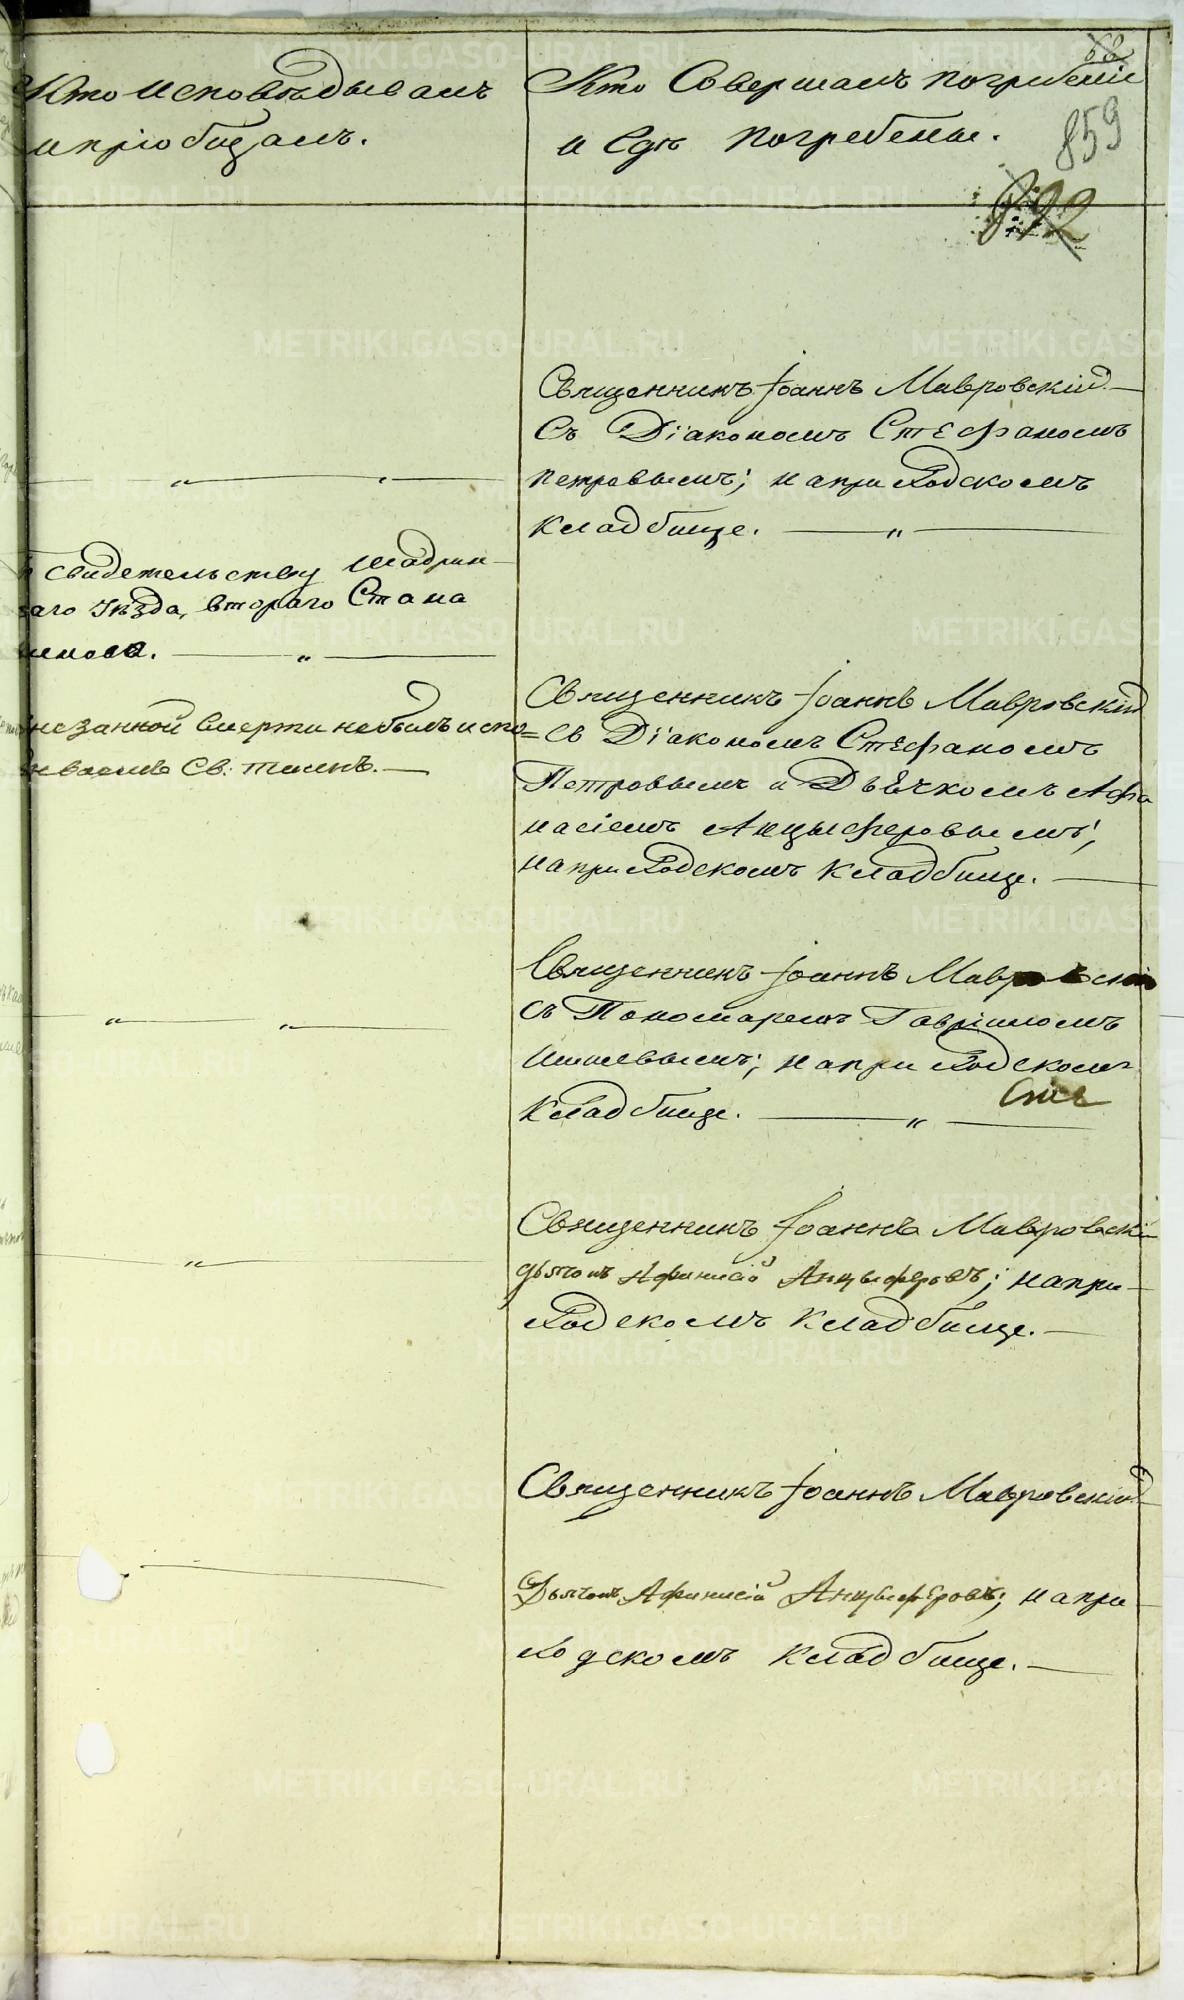 Кто исповѣдывалъ
и пріобщалъ.
Кто Совершалъ погребеніе
и Гдѣ погребены.
859
892
Священникъ Іоаннъ Мавровскій
Съ Діакономъ Стефаномъ
Петровымъ; на приходскомъ
кладбище. — „ —
свидетельству Шадрин-
заго Уѣзда, втораго Стана
Священникъ Іоаннъ Мавровскій
незапной смерти небылъ испо=
Св. таинъ.
съ Діакономъ Стефаномъ
Петровымъ и Дьячкомъ Афа
насіемъ Анцыферовымъ;
на приходскомъ кладбище.
Священникъ Іоаннъ Мавровскій
съ Пономаремъ Гавріиломъ
на приходскомъ
кладбище. — „ —
Священникъ Іоаннъ Мавровскі
дьячокъ Афанасій Анцыферовъ; на при-
ходскомъ кладбище.
Священникъ Іоаннъ Мавровскій
Дьячокъ Афанасій Анцыферовъ; на при
ходскомъ кладбище.
METRIKI.GASO-URAL.RU